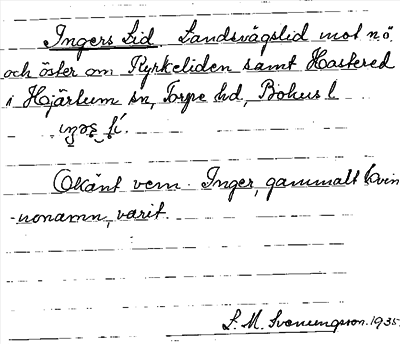 Ingers Lid Landsvägslid mot nö.
och öster om Kyrkeliden samt Hastered
i Hjärtum sn, Torpe hd, Bohus l
Okänt vem Inger, gammalt kvin
-nonamn, varit.
S. M. Svenungsson. 1935